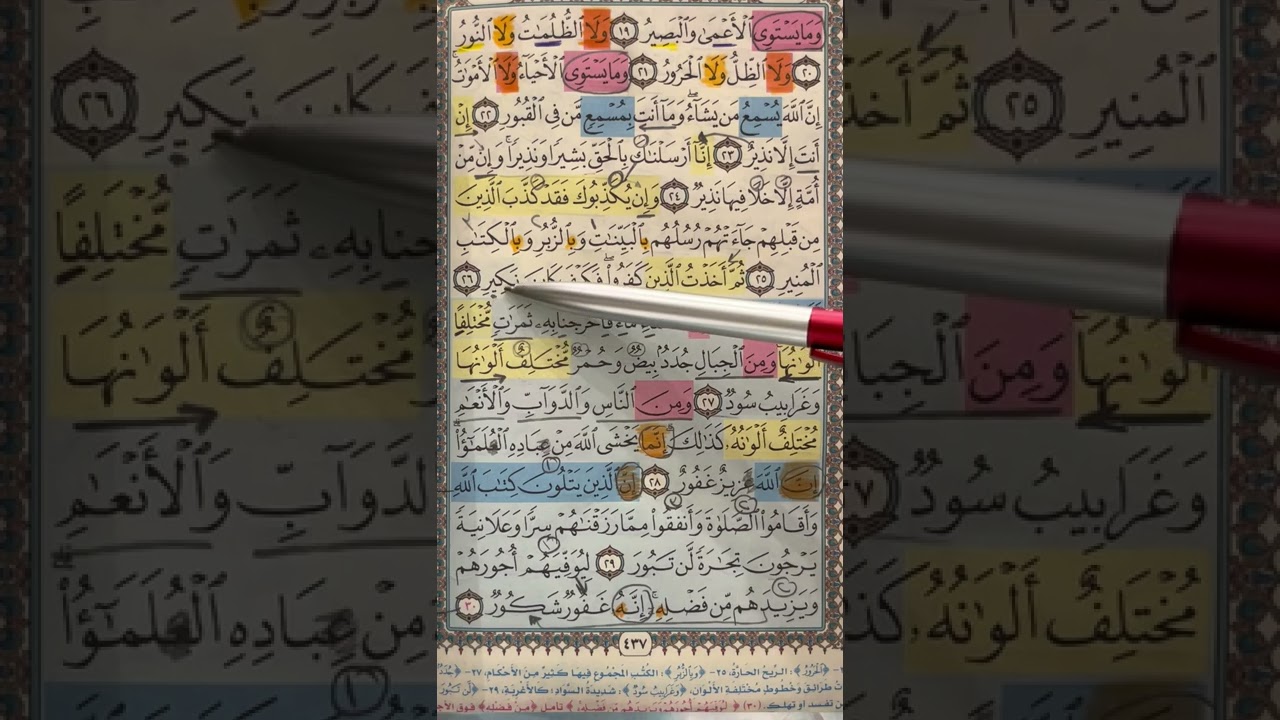 وَمَا يَسْتَوِى ٱلْأَعْمَىٰ وَٱلْبَصِيرُ ١٩ وَلَا ٱلظُّلُمَٰتُ وَلَا ٱلنُّورُ
٢٠ وَلَا ٱلظِّلُّ وَلَا ٱلْحَرُورُ ٢١ وَمَا يَسْتَوِى ٱلْأَحْيَآءُ وَلَا ٱلْأَمْوَٰتُ
إِنَّ ٱللَّهَ يُسْمِعُ مَن يَشَآءُ وَمَآ أَنتَ بِمُسْمِعٍ مَّن فِى ٱلْقُبُورِ ٢٢ إِنْ
أَنتَ إِلَّا نَذِيرٌ ٢٣ إِنَّآ أَرْسَلْنَٰكَ بِٱلْحَقِّ بَشِيرًا وَنَذِيرًا وَإِن مِّنْ
أُمَّةٍ إِلَّا خَلَا فِيهَا نَذِيرٌ ٢٤ وَإِن يُكَذِّبُوكَ فَقَدْ كَذَّبَ ٱلَّذِينَ
مِن قَبْلِهِمْ جَآءَتْهُمْ رُسُلُهُم بِٱلْبَيِّنَٰتِ وَبِٱلزُّبُرِ وَبِٱلْكِتَٰبِ
ٱلْمُنِيرِ ٢٥ ثُمَّ أَخَذْتُ ٱلَّذِينَ كَفَرُوا۟ فَكَيْفَ كَانَ نَكِيرِ ٢٦
مَآءً فَأَخْرَجْنَا بِهِۦ ثَمَرَٰتٍ مُّخْتَلِفًا
أَلْوَٰنُهَا وَمِنَ ٱلْجِبَالِ جُدَدٌۢ بِيضٌ وَحُمْرٌ مُّخْتَلِفٌ أَلْوَٰنُهَا
وَغَرَابِيبُ سُودٌ ٢٧ وَمِنَ ٱلنَّاسِ وَٱلدَّوَآبِّ وَٱلْأَنْعَٰمِ
مُخْتَلِفٌ أَلْوَٰنُهُۥ كَذَٰلِكَ إِنَّمَا يَخْشَى ٱللَّهَ مِنْ عِبَادِهِ ٱلْعُلَمَٰٓؤُا۟
إِنَّ ٱللَّهَ عَزِيزٌ غَفُورٌ ٢٨ إِنَّ ٱلَّذِينَ يَتْلُونَ كِتَٰبَ ٱللَّهِ
وَأَقَامُوا۟ ٱلصَّلَوٰةَ وَأَنفَقُوا۟ مِمَّا رَزَقْنَٰهُمْ سِرًّا وَعَلَانِيَةً
يَرْجُونَ تِجَٰرَةً لَّن تَبُورَ ٢٩ لِيُوَفِّيَهُمْ أُجُورَهُمْ
وَيَزِيدَهُم مِّن فَضْلِهِۦٓ إِنَّهُۥ غَفُورٌ شَكُورٌ ٣٠
٤٣٧
﴿ٱلْحَرُورُ﴾: الرِّيحُ الحَارَّةُ، ٢٥- ﴿وَبِٱلزُّبُرِ﴾: الكُتُبِ المَجْمُوعِ فِيهَا كَثِيرٌ مِنَ الأَحْكَامِ، ٢٧-
طَرَائِقُ وَخُطُوطٌ مُخْتَلِفَةُ الأَلْوَانِ، ﴿وَغَرَابِيبُ سُودٌ﴾: شَدِيدَةُ السَّوَادِ؛ كَالأَغْرِبَةِ، ٢٩- ﴿لَّن تَبُورَ﴾
تفسد أو تهلك. (٣٠) ﴿لِيُوَفِّيَهُمْ أُجُورَهُمْ وَيَزِيدَهُم مِّن فَضْلِهِ﴾ تأمل ﴿مِّن فَضْلِهِ﴾ فوق